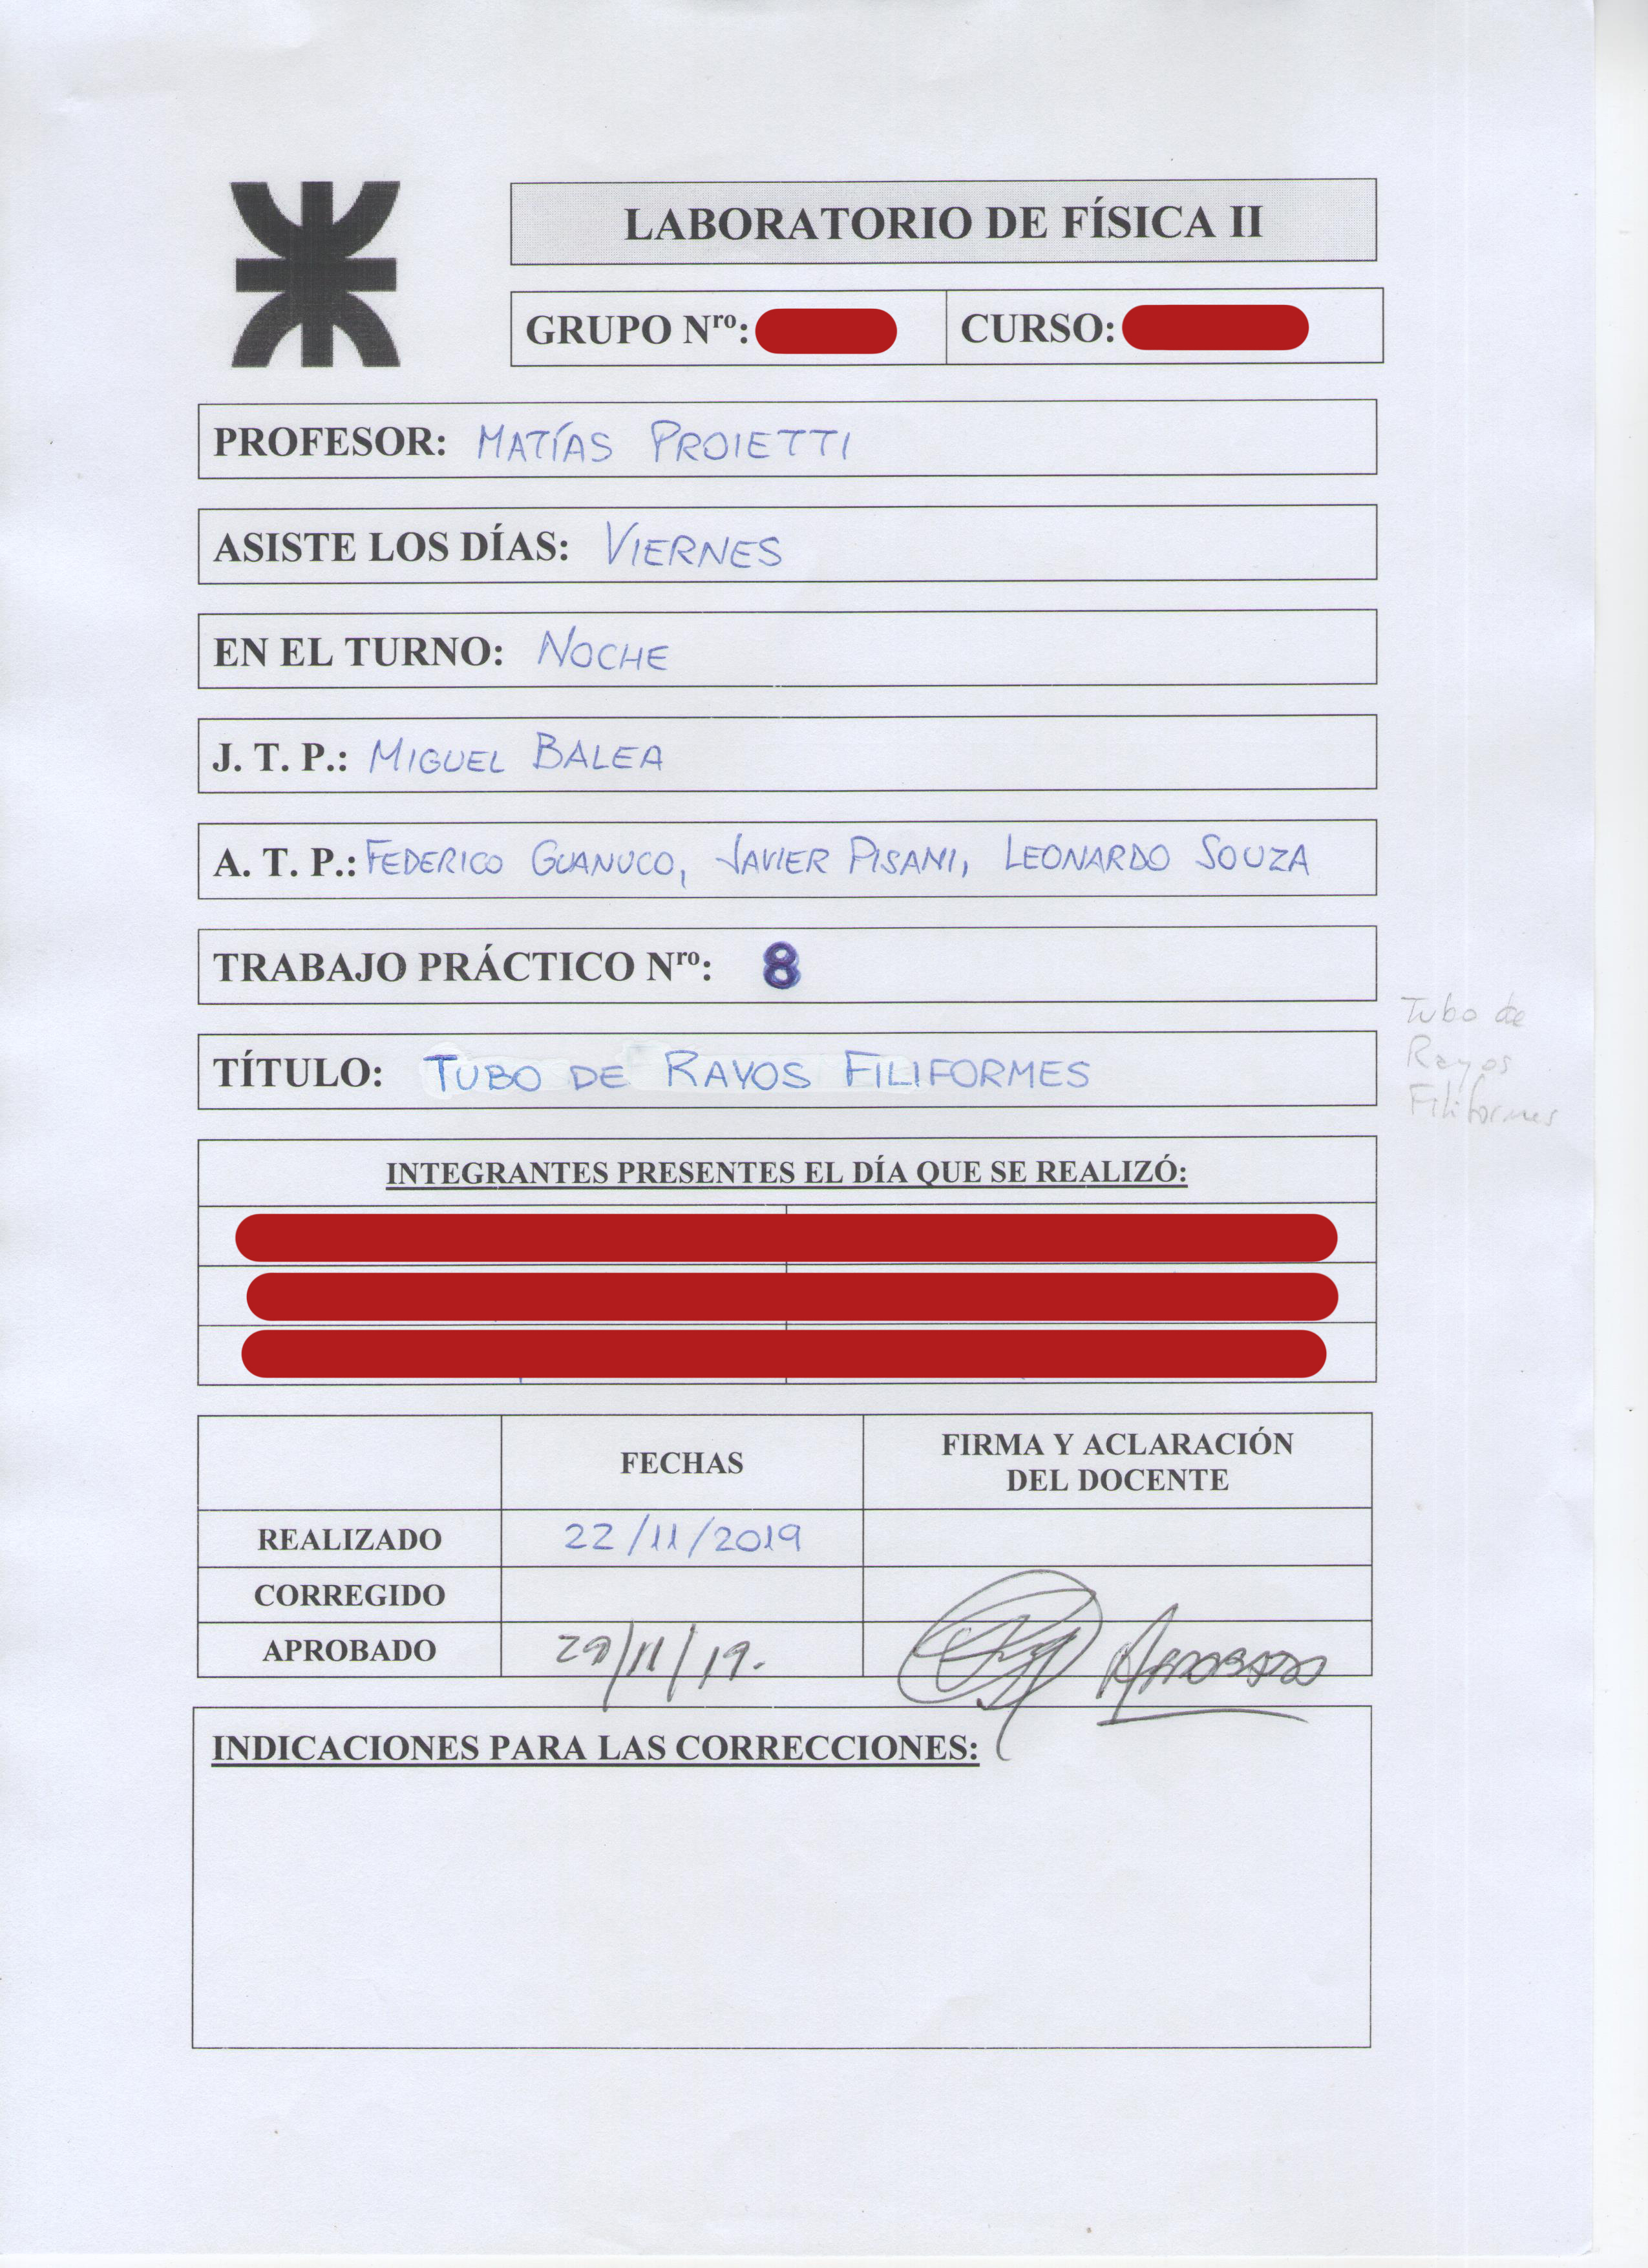 LABORATORIO DE FÍSICA II
GRUPO Nro: CURSO:
PROFESOR: MATÍAS PROIETTI
ASISTE LOS DÍAS: VIERNES
EN EL TURNO: NOCHE
J. T. P.: MIGUEL BALEA
A. T. P.: FEDERICO GUANUCO, JAVIER PISANI, LEONARDO SOUZA
TRABAJO PRÁCTICO Nro: 8
TÍTULO: TUBO DE RAYOS FILIFORMES
Tubo de
Rayos
Filiformes
INTEGRANTES PRESENTES EL DÍA QUE SE REALIZÓ:
FECHAS
FIRMA Y ACLARACIÓN
DEL DOCENTE
REALIZADO 22/11/2019
CORREGIDO
APROBADO 29/11/19. APROBADO
INDICACIONES PARA LAS CORRECCIONES: